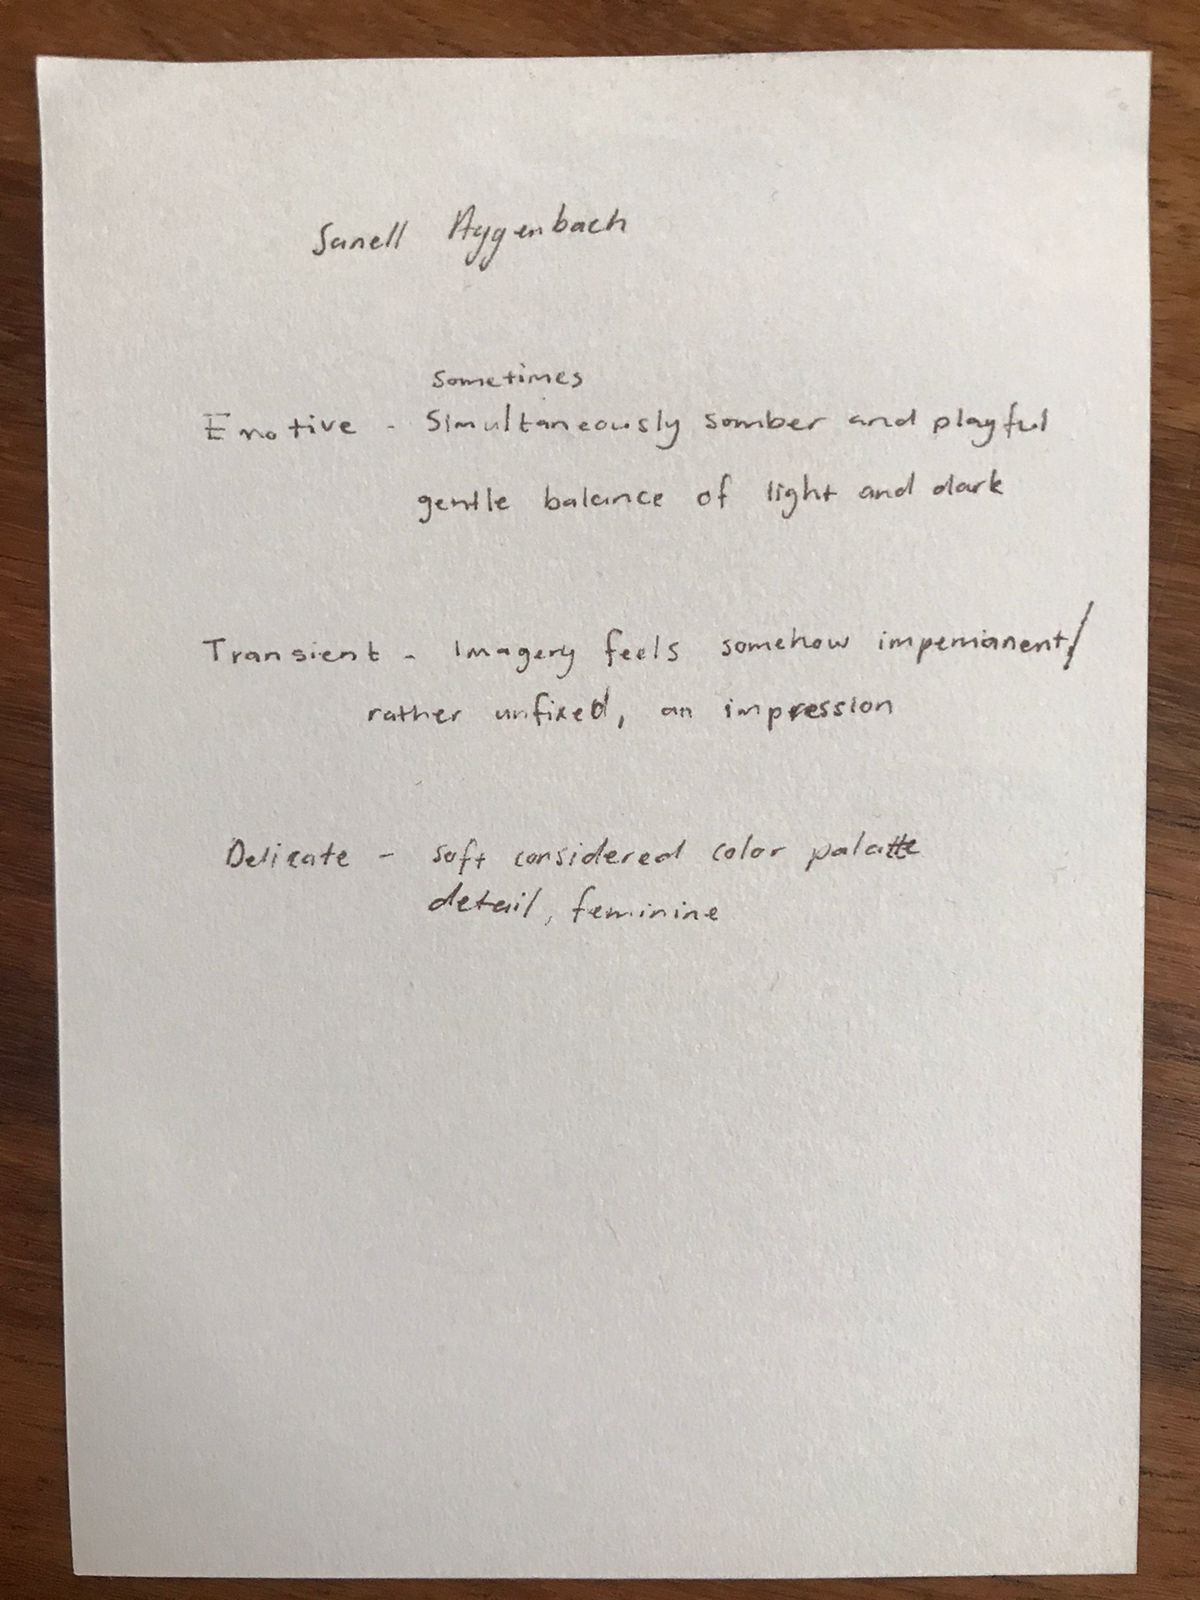 Sanell Aggenbach
sometimes
Emotive - Simultaneously somber and playful
gentle balance of light and dark
Transient - Imagery feels somehow impermanent/
rather unfixed, an impression
Delicate - soft considered color palatte
detail, feminine